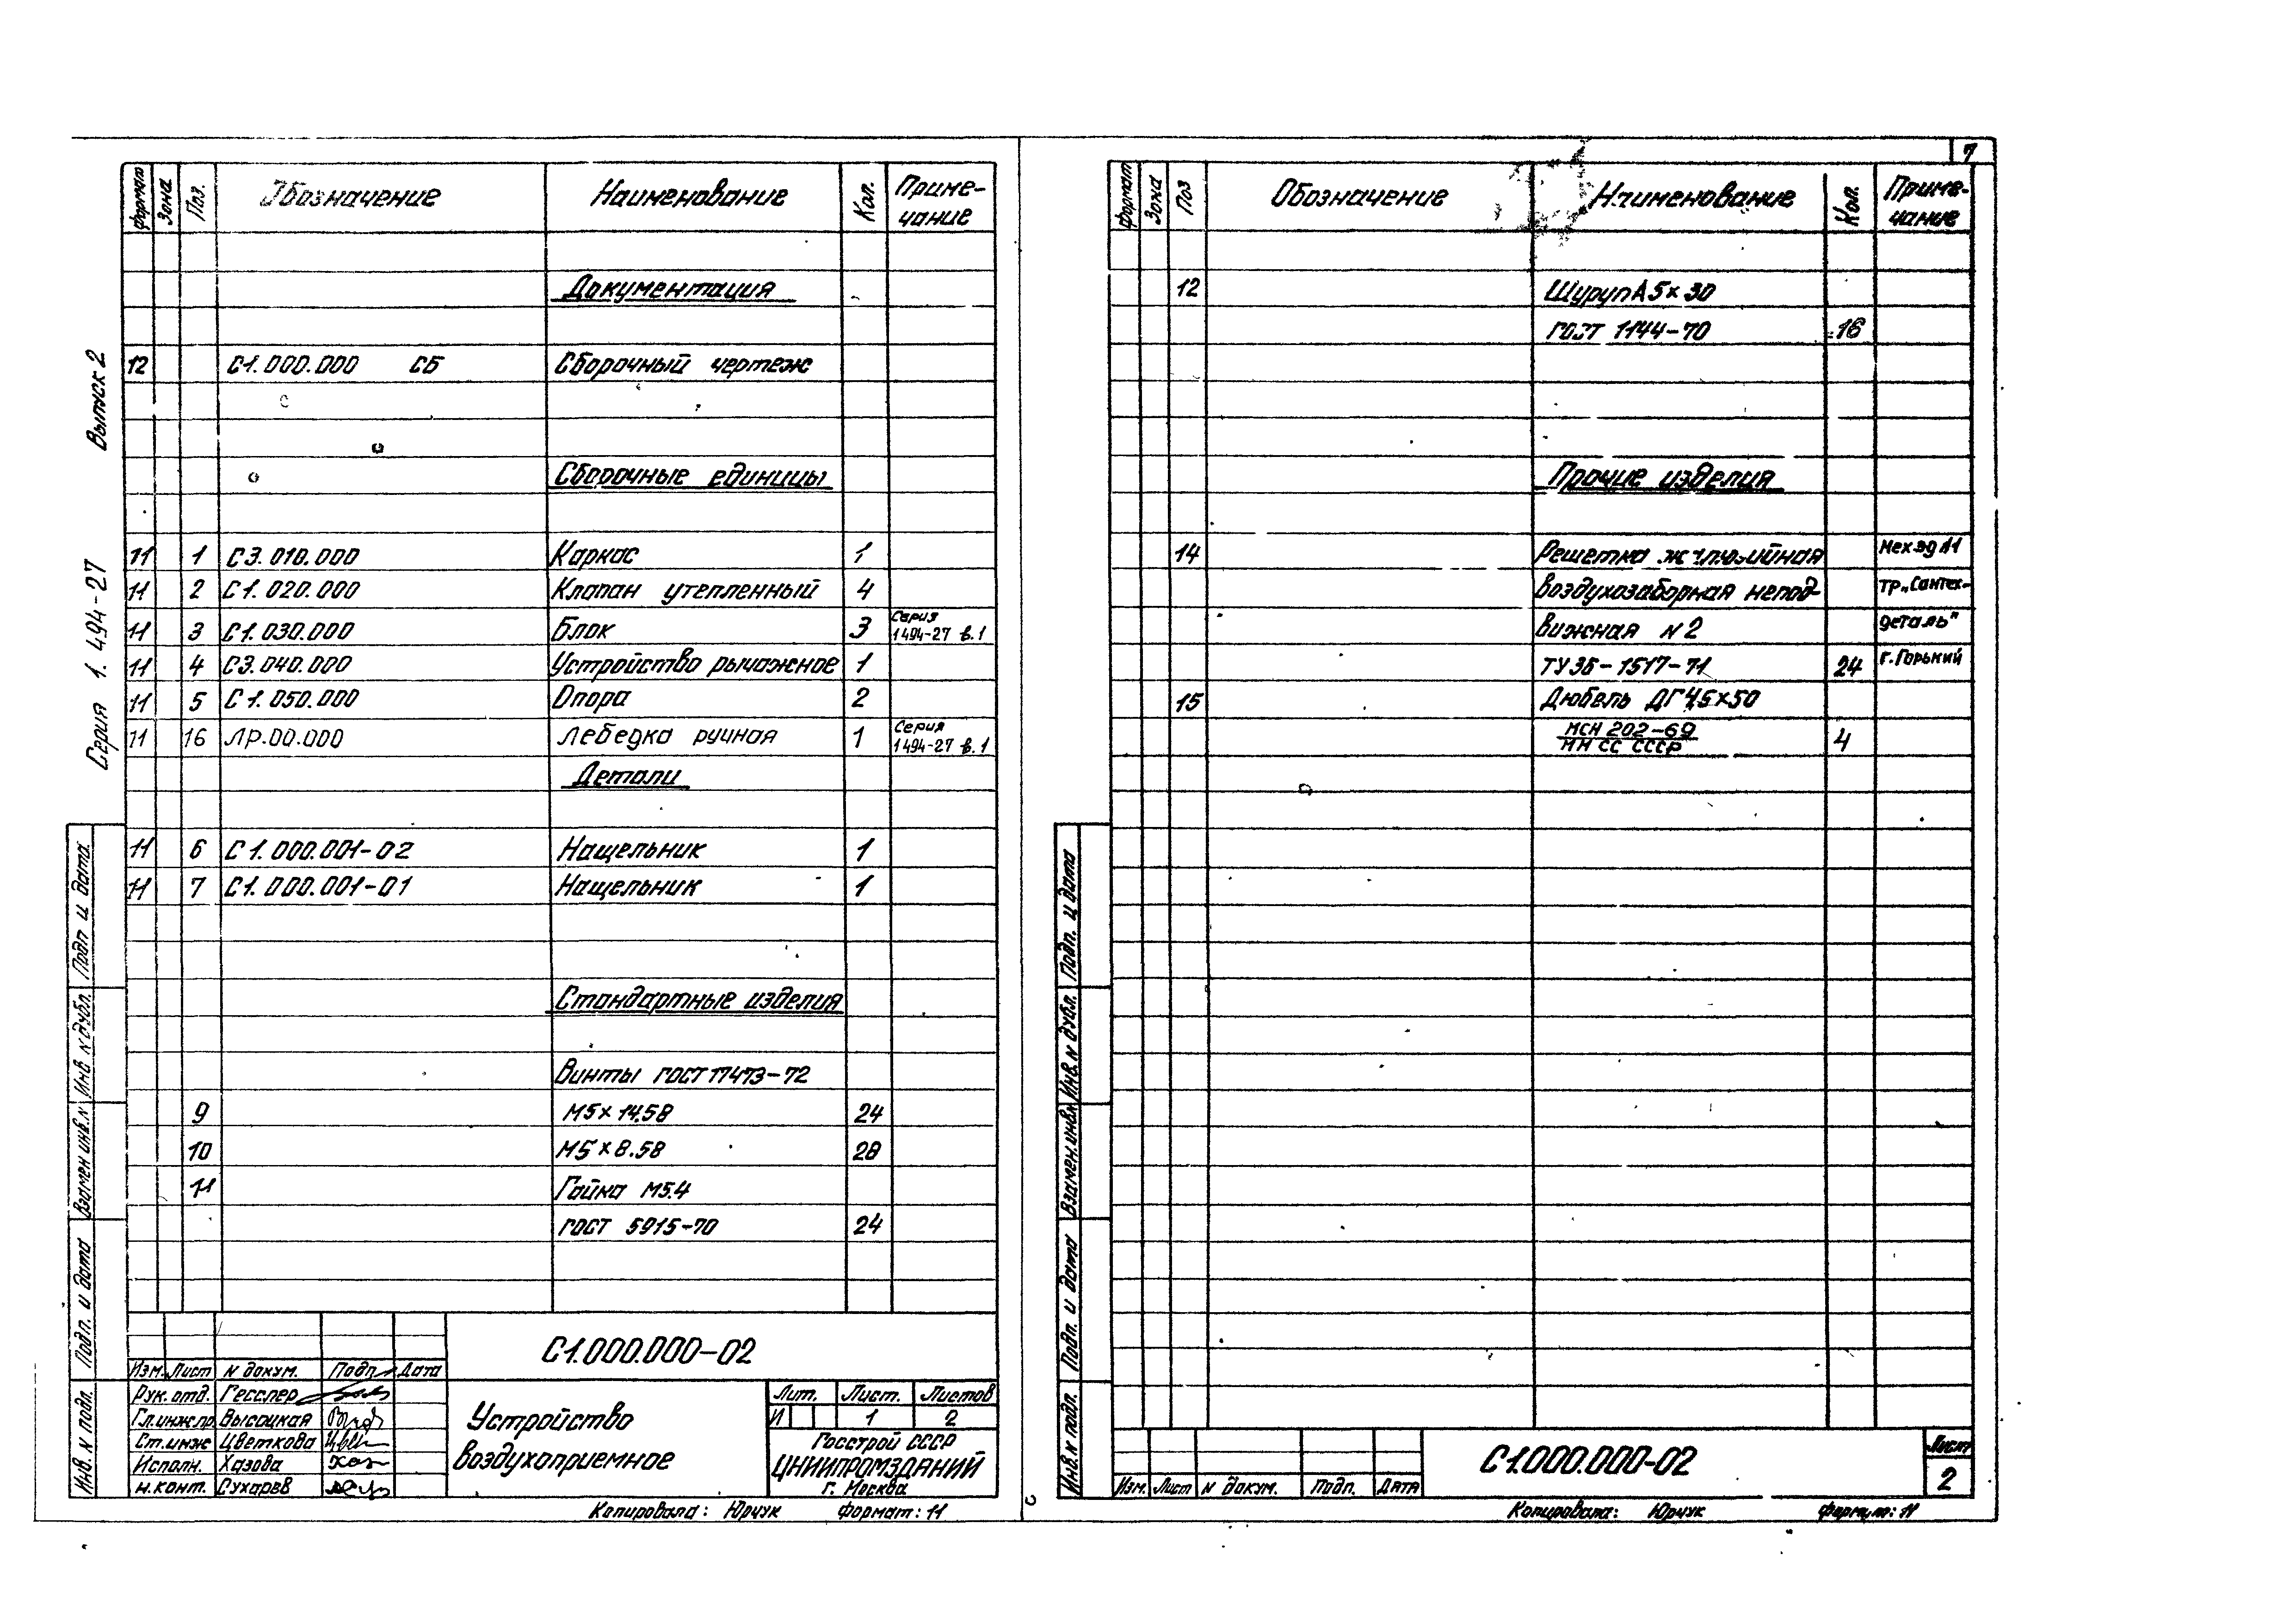 7
Серия 1.494-27 Выпуск 2
Формат Зона Поз. Обозначение Наименование Кол. Приме-
чание
Документация
12 С1.000.000 СБ Сборочный чертеж
Сборочные единицы
11 1 С3.010.000 Каркас 1
11 2 С1.020.000 Клапан утепленный 4
11 3 С1.030.000 Блок 3 Серия
1494-27 в.1
11 4 С3.040.000 Устройство рычажное 1
11 5 С1.050.000 Опора 2
11 16 ЛР.00.000 Лебедка ручная 1 Серия
1494-27 в.1
Детали
11 6 С1.000.001-02 Нащельник 1
11 7 С1.000.001-01 Нащельник 1
Стандартные изделия
Винты ГОСТ 17473-72
9 М5×14.58 24
10 М5×8.58 28
11 Гайка М5.4
ГОСТ 5915-70 24
Инв. N подл. Подп. и дата Взамен инв. N Инв. N дубл. Подп. и дата
С1.000.000-02
Изм. Лист N докум. Подп. Дата
Рук. отд. Гесслер
Гл.инж.пр. Высоцкая
Ст.инж Цветкова
Исполн. Хазова
Н.конт. Сухарев
Устройство
воздухоприемное
Лит. Лист. Листов
И 1 2
Госстрой СССР
ЦНИИПРОМЗДАНИЙ
г. Москва
Копировала: Юрчук Формат: 11
Формат Зона Поз Обозначение Наименование Кол. Приме-
чание
12 Шуруп А5×30
ГОСТ 1144-70 16
Прочие изделия
14 Решетка жалюзийная Мех.зд №1
воздухозаборная непод- тр. „Сантех-
вижная N2 деталь"
ТУ 36-1517-71 24 г.Горький
15 Дюбель ДГ 4,5×50
МСН 202-69
ММ СС СССР 4
Инв. N подл. Подп. и дата Взамен. инв. N Инв. N дубл. Подп. и дата
Изм. Лист N докум. Подп. Дата
С1.000.000-02
Лист
2
Копировала: Юрчук Формат: 11